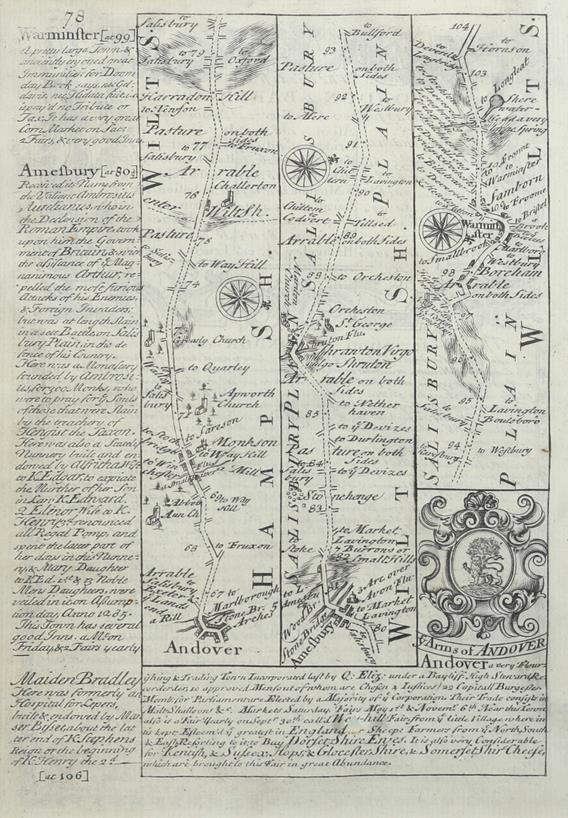 78
Warminster [at 99]
A pretty large Town &
anciently enjoyed great
Immunities for Dooms
day Book says,
Tax. It has a very great
Corn Market on Sat.
2 Fairs, & every good Inns.
Amesbury [at 80½]
Received its Name from
the Valiant Ambrosius
Aurelianus who in
the Declension of the
Roman Empire took
upon him the Govern
ment of Britain & with
the assistance of ye Mag
nanimous Arthur, re
pelled the most furious
Attacks of his Enemies,
& Foreign Invaders;
but was at length Slain
in a set Battle on Salis
bury Plain, in the de
fence of his Country.
Here was a Monastery
founded by Ambrosi
us, for 300 Monks, who
were to pray for ye Souls
of those that were Slain
by the treachery of
Hengist the Saxon.
Here was also a Stately
Nunnery built and en
dowed by Alfritha Wife
to K. Edgar, to expiate
the Murther of her Son
in Law K. Edward.
Q. Elinor Wife to K.
Henry 3d renounced
all Regal Pomp, and
spent the latter part of
her days in this Nunne
ry, & Mary Daughter
to K. Ed. 1st & 13 Noble
Mens Daughters, were
veiled in it on Assump
tion day Anno 1285.
This Town has several
good Inns. a Mt. on
Friday, & 2 Fairs yearly
Maiden Bradley
Here was formerly an
Hospital for Lepers,
built & endowed by Man
ser Biset, about the lat
ter end of K. Stephens
Reign or the beginning
of K. Henry the 2d.
[at 106]
Salisbury
to 79
to Salisbury
to Oxford
to Yenson
Harradon Hill
Pasture on both
to 77
Salisbury
Arrable
Chalterton
76
enter Wiltsh.
Pasture
75
to Salis-
bury
to Way Hill
74
Grately Church
to Quarley
Apworth
Church
to Salis
bury
to Careson
Monkson
to Way Hill
Mill
Abbots
Ann Ch.
to Way
Hill
68
to Fruxon
Arrable
67 to
Marlborough
Stone Br. 5
Arches
a Rill
Andover
WILTS.
HAMPSH.
to Bullford
93
Pasture on both
Sides
92
to Westbury
to Mere
91
to Chil
tern
90
to Lavington
to
Chiltern
to Tilsed
89
Arrable on both Sides
88 to Orcheston
Orcheston
St. George
Shranton Virgo
vulgo Shruton
Arrable on both
Sides
to Nether
haven
85
to ye Devizes
to Durlington
Pasture on both
Sides
84
to Salis
bury
to ye Devizes
Stonehenge
83
to Market
Lavington
7 Burrows or
82 Small Hills
Stoke
3 Arc over
Avon Flu.
to Market
Lavington
Wood Br.
Stone Bridge
80
Amesbury
SALISBURY PLAIN
SALSBURY PLAIN
WILTSH.
104
to Deverel
Longbridge
to Fornson
103
to Longleat
Shere
water
Head a very
large Spring
to Frome
Warminster
to Frome
to Bristol
Warmin
ster
to Smallbrook
to Westbury
Boreham
98
Arrable
on both Sides
95
to Lavington
Boulsboro
94
to Westbury
SALISBURY
PLAIN
WILTS.
ye Arms of ANDOVER
Andover a very flour
ishing & Trading Town Incorporated last by Q: Eliz: under a Bayliff, High Steward, Re
corder, 10 approved Men four of whom are Chosen 4 Justices, 22 Capital Burgesses.
Memb: for Parliament are Elected by a Majority of ye Corporation. Their Trade consists in
Malt, Shalloons &c. Market Saturday. Fairs May 1st & Novem. 6th Near this Town
also is a Fair Yearly on Septr. 30th called Weyhill Fair from ye little Village where in
is kept. Esteem'd ye greatest in England for Sheep. Farmers from ye North, South
& East Resorting to it to Buy Dorset Shire Ewes. It is also very Considerable
for Kentish, & Sussex Hops; & Glocester Shire, & Somerset Shir Cheese,
which are brought to this Fair in great Abundance.